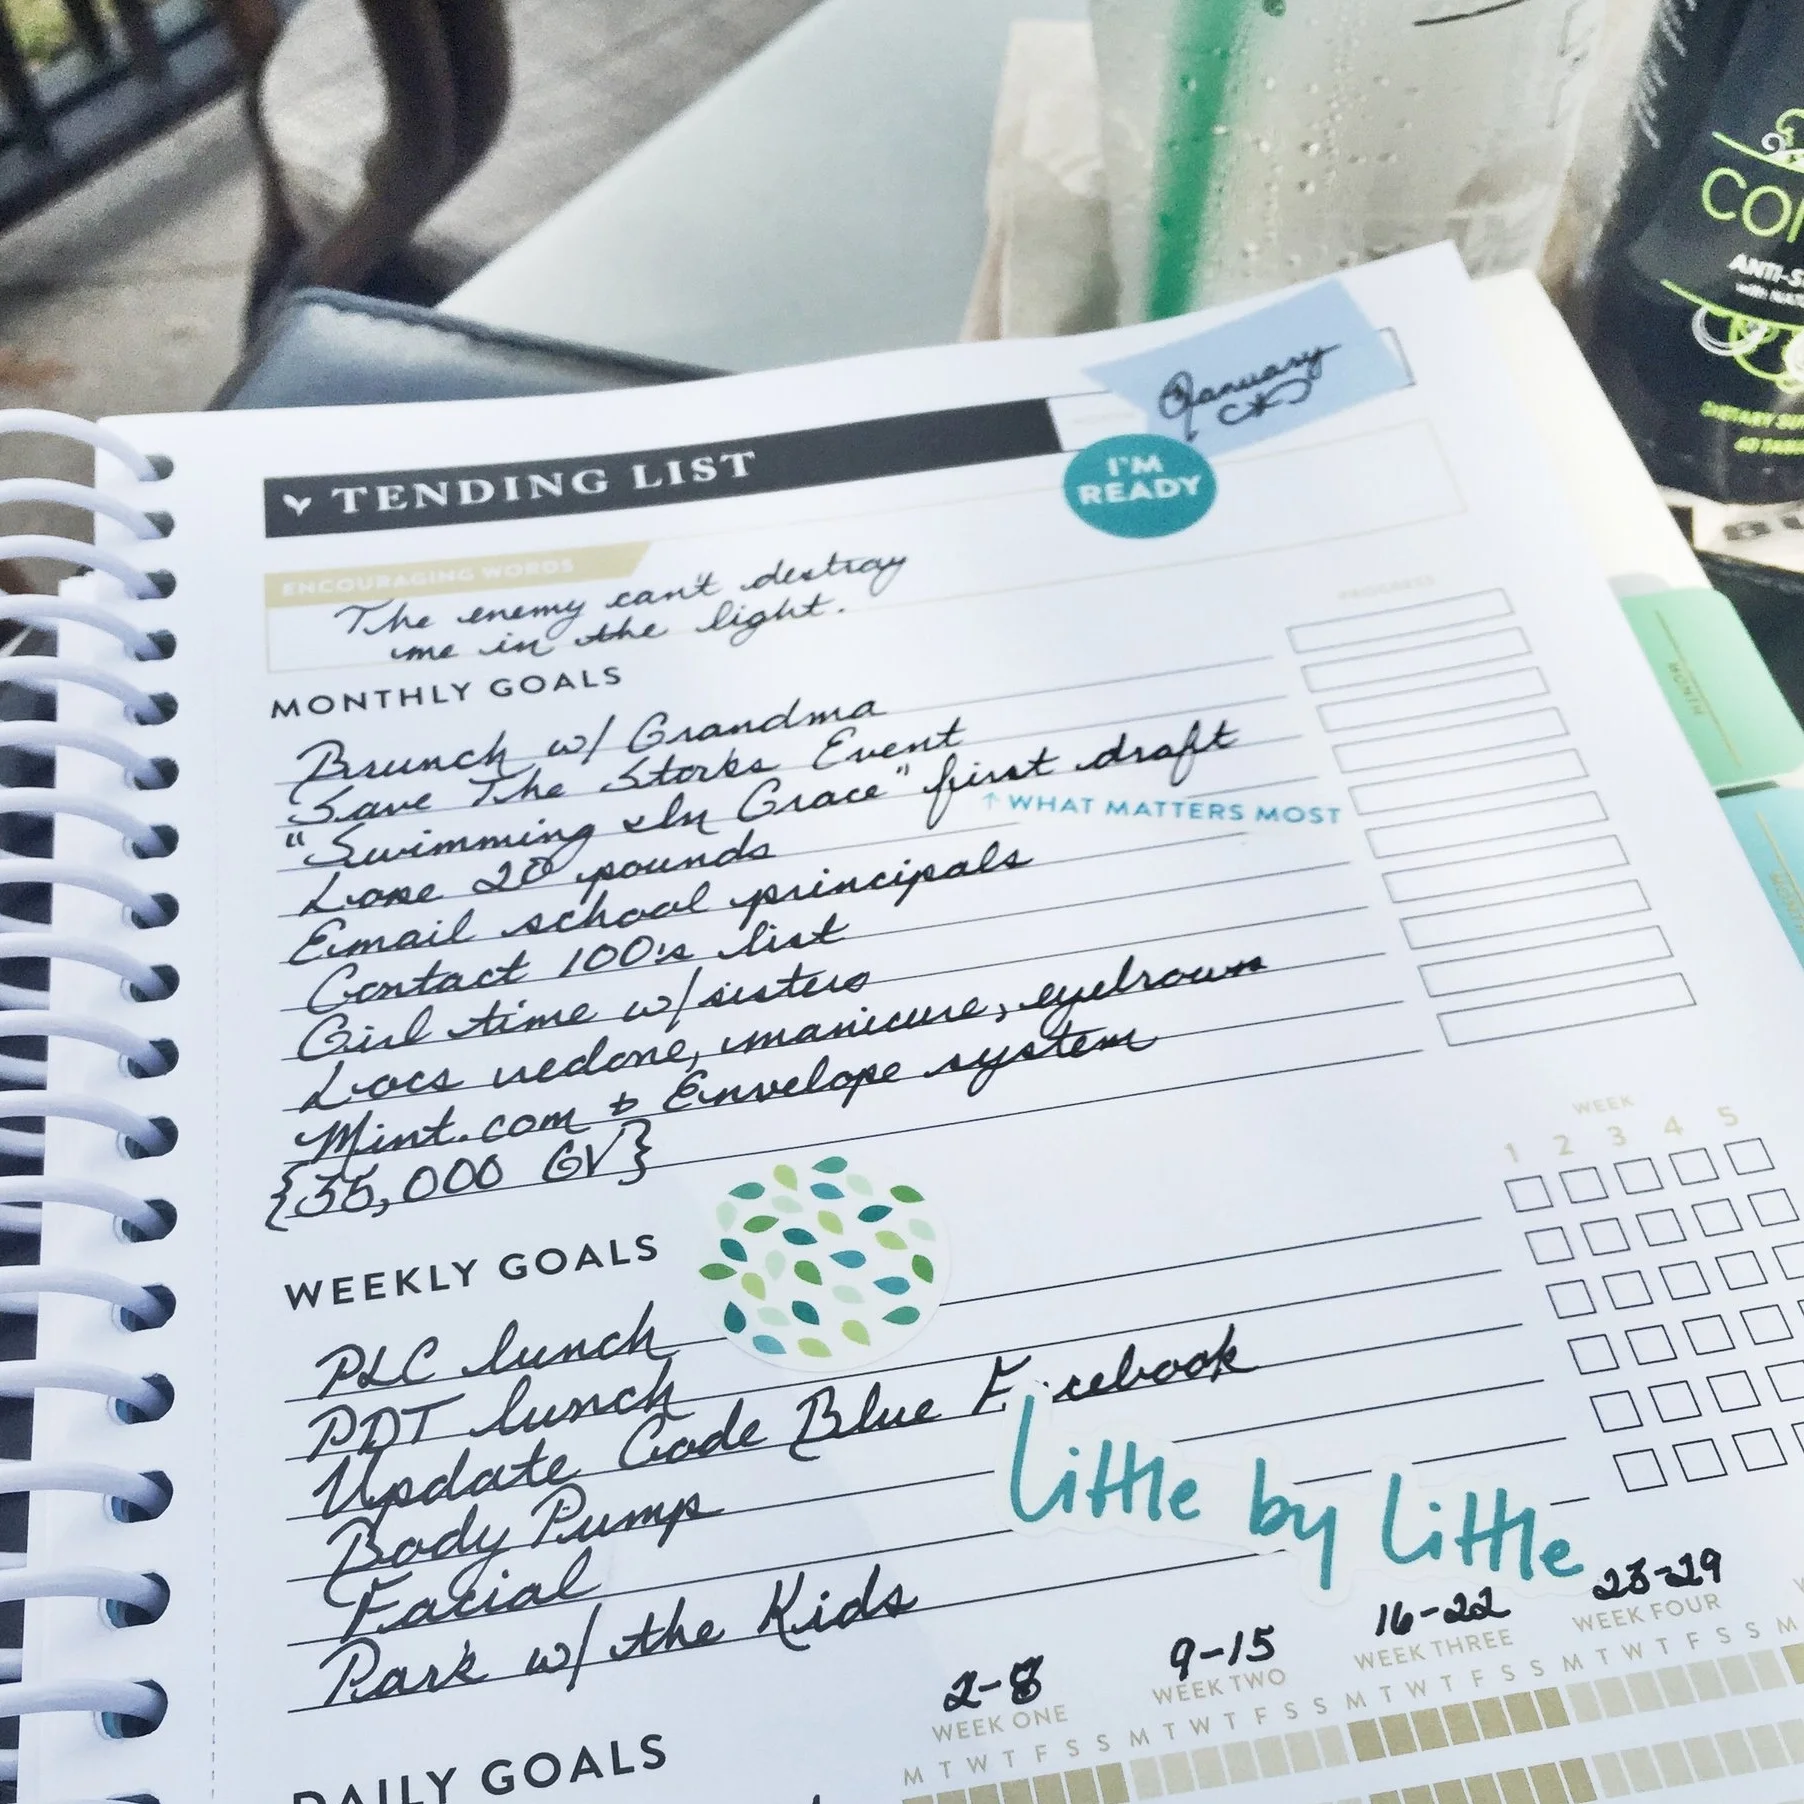 January
TENDING LIST
I'M
READY
ENCOURAGING WORDS
The enemy can't destroy
me in the light.
PROGRESS
MONTHLY GOALS
Brunch w/ Grandma
Save The Storks Event
"Swimming In Grace" first draft
↑ WHAT MATTERS MOST
Lose 20 pounds
Email school principals
Contact 100's list
Girl time w/sisters
Locs redone, manicure, eyebrows
Mint.com & Envelope system
{35,000 GV}
WEEK
1 2 3 4 5
WEEKLY GOALS
PLC lunch
PDT lunch
Update Code Blue Facebook
Body Pump
Facial
Park w/ the Kids
little by little
2-8 9-15 16-22 23-29
WEEK ONE WEEK TWO WEEK THREE WEEK FOUR
M T W T F S S M T W T F S S M T W T F S S M T W T F S S M
DAILY GOALS
MONTH
ANTI-S
60 TAB